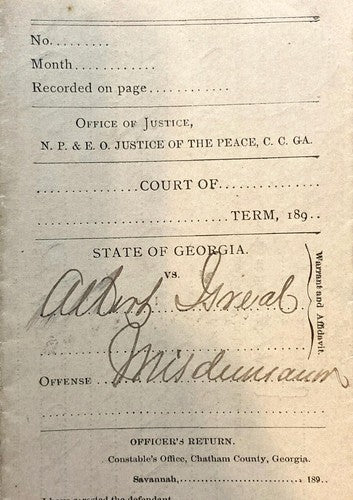 No..........
Month............
Recorded on page............
OFFICE OF JUSTICE,
N. P. & E. O. JUSTICE OF THE PEACE, C. C. GA.
............COURT OF...............
............................TERM, 189..
STATE OF GEORGIA.
VS.
Albert
Warrant and Affidavit.
OFFENSE Misdemeanor
OFFICER'S RETURN.
Constable's Office, Chatham County, Georgia.
Savannah,..............................189..
I have arrested the defendant